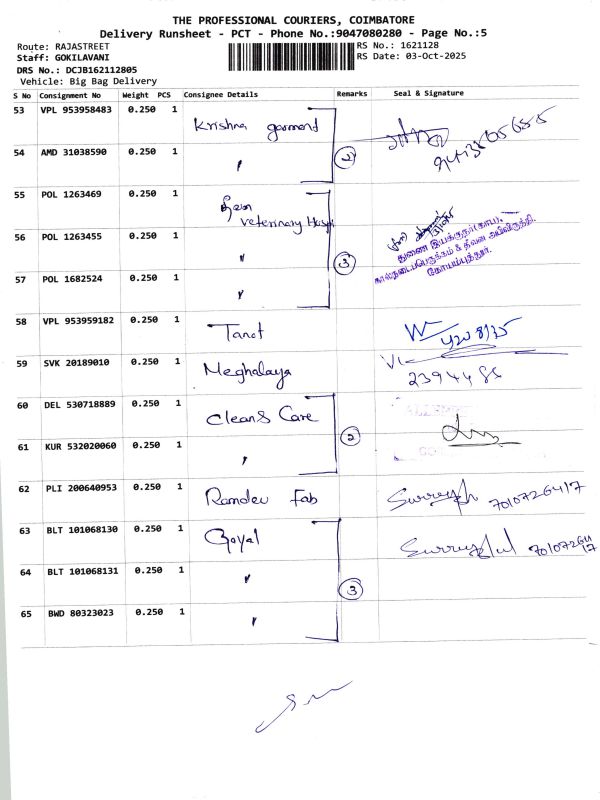 THE PROFESSIONAL COURIERS, COIMBATORE
Delivery Runsheet - PCT - Phone No.:9047080280 - Page No.:5
Route: RAJASTREET
RS No.: 1621128
Staff: GOKILAVANI
RS Date: 03-Oct-2025
DRS No.: DCJB162112805
Vehicle: Big Bag Delivery
S No Consignment No Weight PCS Consignee Details Remarks Seal & Signature
53 VPL 953958483 0.250 1 Krishna garment
54 AMD 31038590 0.250 1 " 2
55 POL 1263469 0.250 1 veterinary
56 POL 1263455 0.250 1 " 3
துணை இயக்குநர்(கா.ப),
கால்நடைபெருக்கம் & தீவன அபிவிருத்தி,
கோயம்புத்தூர்.
57 POL 1682524 0.250 1 "
58 VPL 953959182 0.250 1 Tanot
59 SVK 20189010 0.250 1 Meghalaya 2394486
60 DEL 530718889 0.250 1 Clean & Care
61 KUR 532020060 0.250 1 " 2
62 PLI 200640953 0.250 1 Ramdev Fab 7010726417
63 BLT 101068130 0.250 1 Goyal 7010726417
64 BLT 101068131 0.250 1 "
3
65 BWD 80323023 0.250 1 "